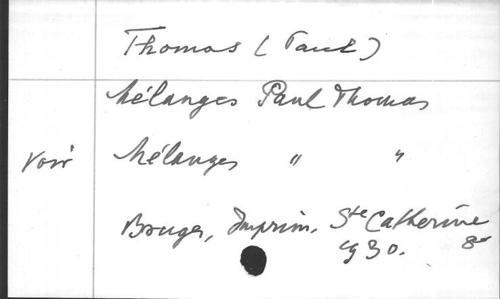 Thomas (Paul)
Mélanges Paul Thomas
Voir Mélanges " "
Bruges, Imprim. Ste Catherine
1930. 8°